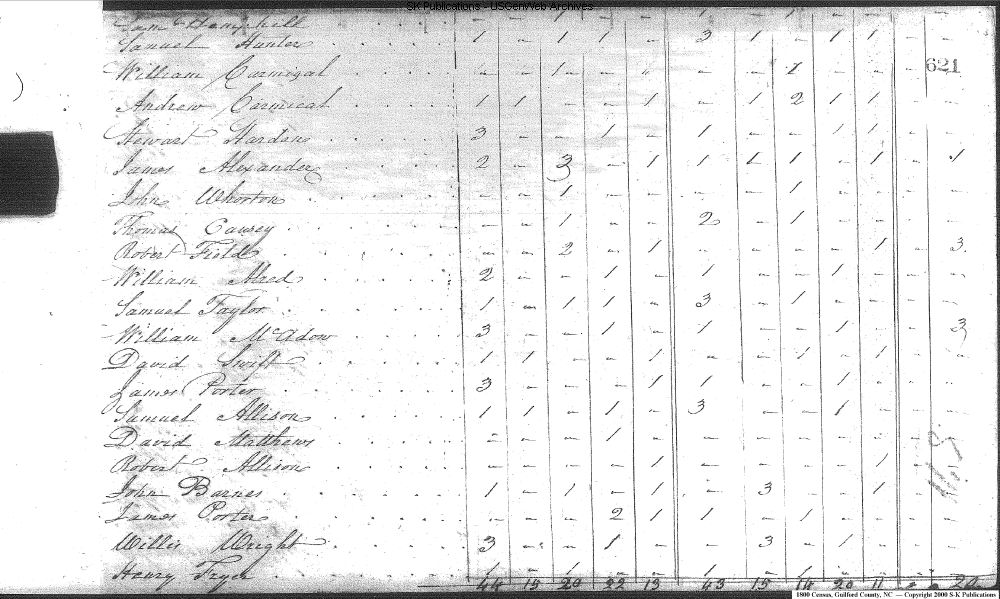 SK Publications - USGenWeb Archives
Samuel Hunter 1 - 1 1 - 3 1 - 1 1 - -
621
William Carmigal - - 1 - - - - 1 - - - -
Andrew Carmical 1 1 - - 1 - 1 2 1 1 - -
Stewart Harden 3 - - 1 - 1 - - 1 1 - -
James Alexander 2 - 3 - 1 1 1 1 - 1 - 1
John Whorton - - 1 - - - - 1 - - - -
Thomas Causey - - 1 - - 2 - 1 - - - -
Robert Field - - 2 - 1 - - - - 1 - 3
William Alred 2 - - 1 - 1 - - 1 - - -
Samuel Taylor 1 - 1 1 - 3 - 1 - - - -
William McAdow 3 - - 1 - 1 - - 1 - - 3
David Swift 1 1 - - 1 - - 1 - 1 - -
James Porter 3 - - - 1 1 - - 1 - - -
Samuel Allison 1 1 - 1 - 3 - - 1 - - -
David Matthews - - - 1 - - - - - - - -
Robert Allison - - - - 1 - - - - 1 - -
John Barnes 1 - 1 - 1 - 3 - - 1 - -
James Porter - - - 2 1 1 - 1 - - - -
Willis Wright 3 - - 1 - - 3 - 1 - - -
Henry Fryer 1 - 1 - - 1 - 1 - - - -
44 15 20 22 13 43 15 14 20 11 20
1800 Census, Guilford County, NC — Copyright 2000 S-K Publications